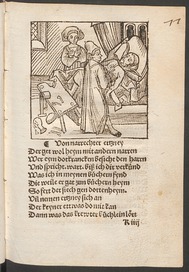 11
¶ Von narrechter ertzney
Der gat wol heym mit andern narren
Wer eym dotkrancken besicht den harn
Und spricht. wart. biß ich dir verkünd
Was ich in meynen büchern fynd
Die weile er gat zun büchern heym
So fert der siech gen dottenheym.
Vil nemen ertzney sich an
Der keyner ettwas do mit kan
Dann was das kreuter büchlein lert
K iiij